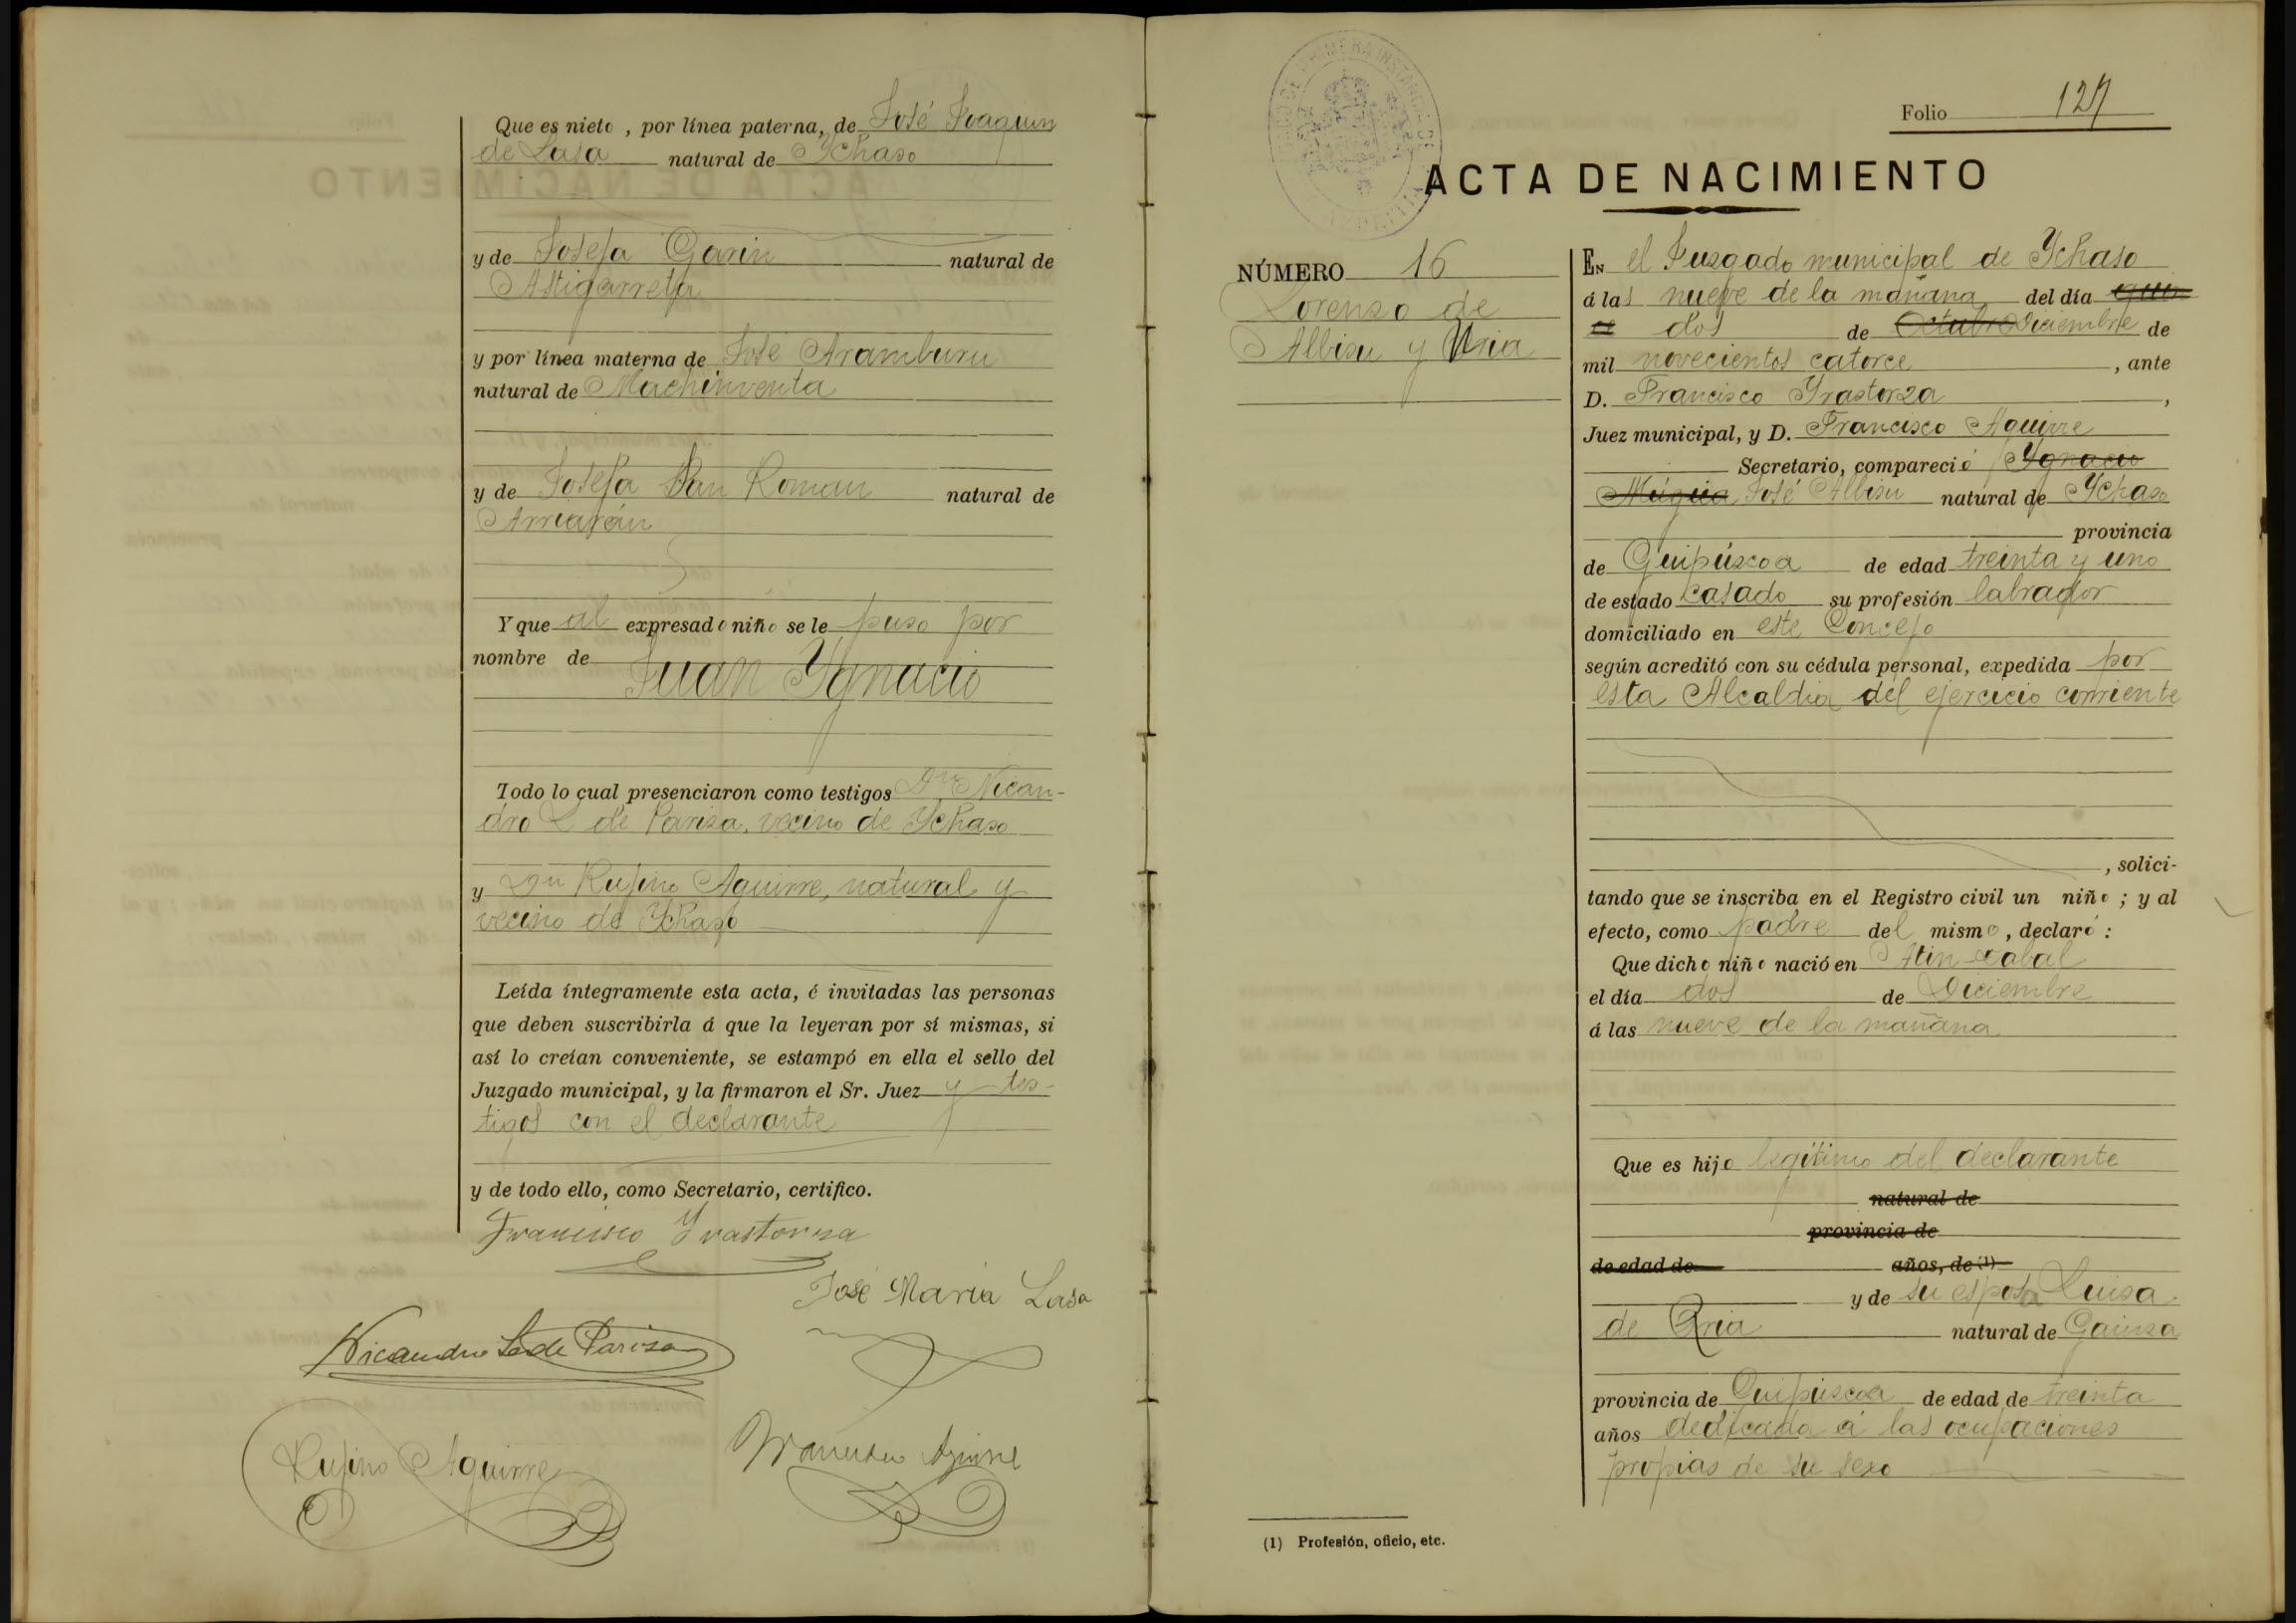 Que es nieto, por línea paterna, de José Joaquin
de Lasa natural de Ychaso
y de Josefa Garin natural de
Astigarreta
y por línea materna de José Aramburu
natural de Machinventa
y de Josefa San Roman natural de
Arriarán
Y que al expresado niño se le puso por
nombre de Juan Ygnacio
Todo lo cual presenciaron como testigos Dn Nican-
dro L de Pariza, vecino de Ychaso
y Dn Rufino Aguirre, natural y
vecino de Ychaso
Leída íntegramente esta acta, é invitadas las personas
que deben suscribirla á que la leyeran por sí mismas, si
así lo creían conveniente, se estampó en ella el sello del
Juzgado municipal, y la firmaron el Sr. Juez y tes-
tigos con el declarante
y de todo ello, como Secretario, certifico.
Francisco Yrastorza
José María Lasa
Nicandro L. de Pariza
Rufino Aguirre
Francisco Aguirre
Folio 127
ACTA DE NACIMIENTO
NÚMERO 16
Lorenzo de
Albisu y Uria
EN el Juzgado municipal de Ychaso
á las nueve de la mañana del día
dos de Octubre Diciembre de
mil novecientos catorce, ante
D. Francisco Yrastorza,
Juez municipal, y D. Francisco Aguirre
Secretario, compareció Ygnacio
Múgica José Albisu natural de Ychaso
provincia
de Guipúzcoa de edad treinta y uno
de estado casado su profesión labrador
domiciliado en este Concejo
según acreditó con su cédula personal, expedida por
esta Alcaldia del ejercicio corriente
, solici-
tando que se inscriba en el Registro civil un niño; y al
efecto, como padre del mismo, declaró:
Que dicho niño nació en Atin-zabal
el día dos de Diciembre
á las nueve de la mañana
Que es hijo legítimo del declarante
natural de
provincia de
de edad de años, de (1)
y de su esposa Luisa
de Uria natural de Gainza
provincia de Guipúzcoa de edad de treinta
años dedicada á las ocupaciones
propias de su sexo
(1) Profesión, oficio, etc.